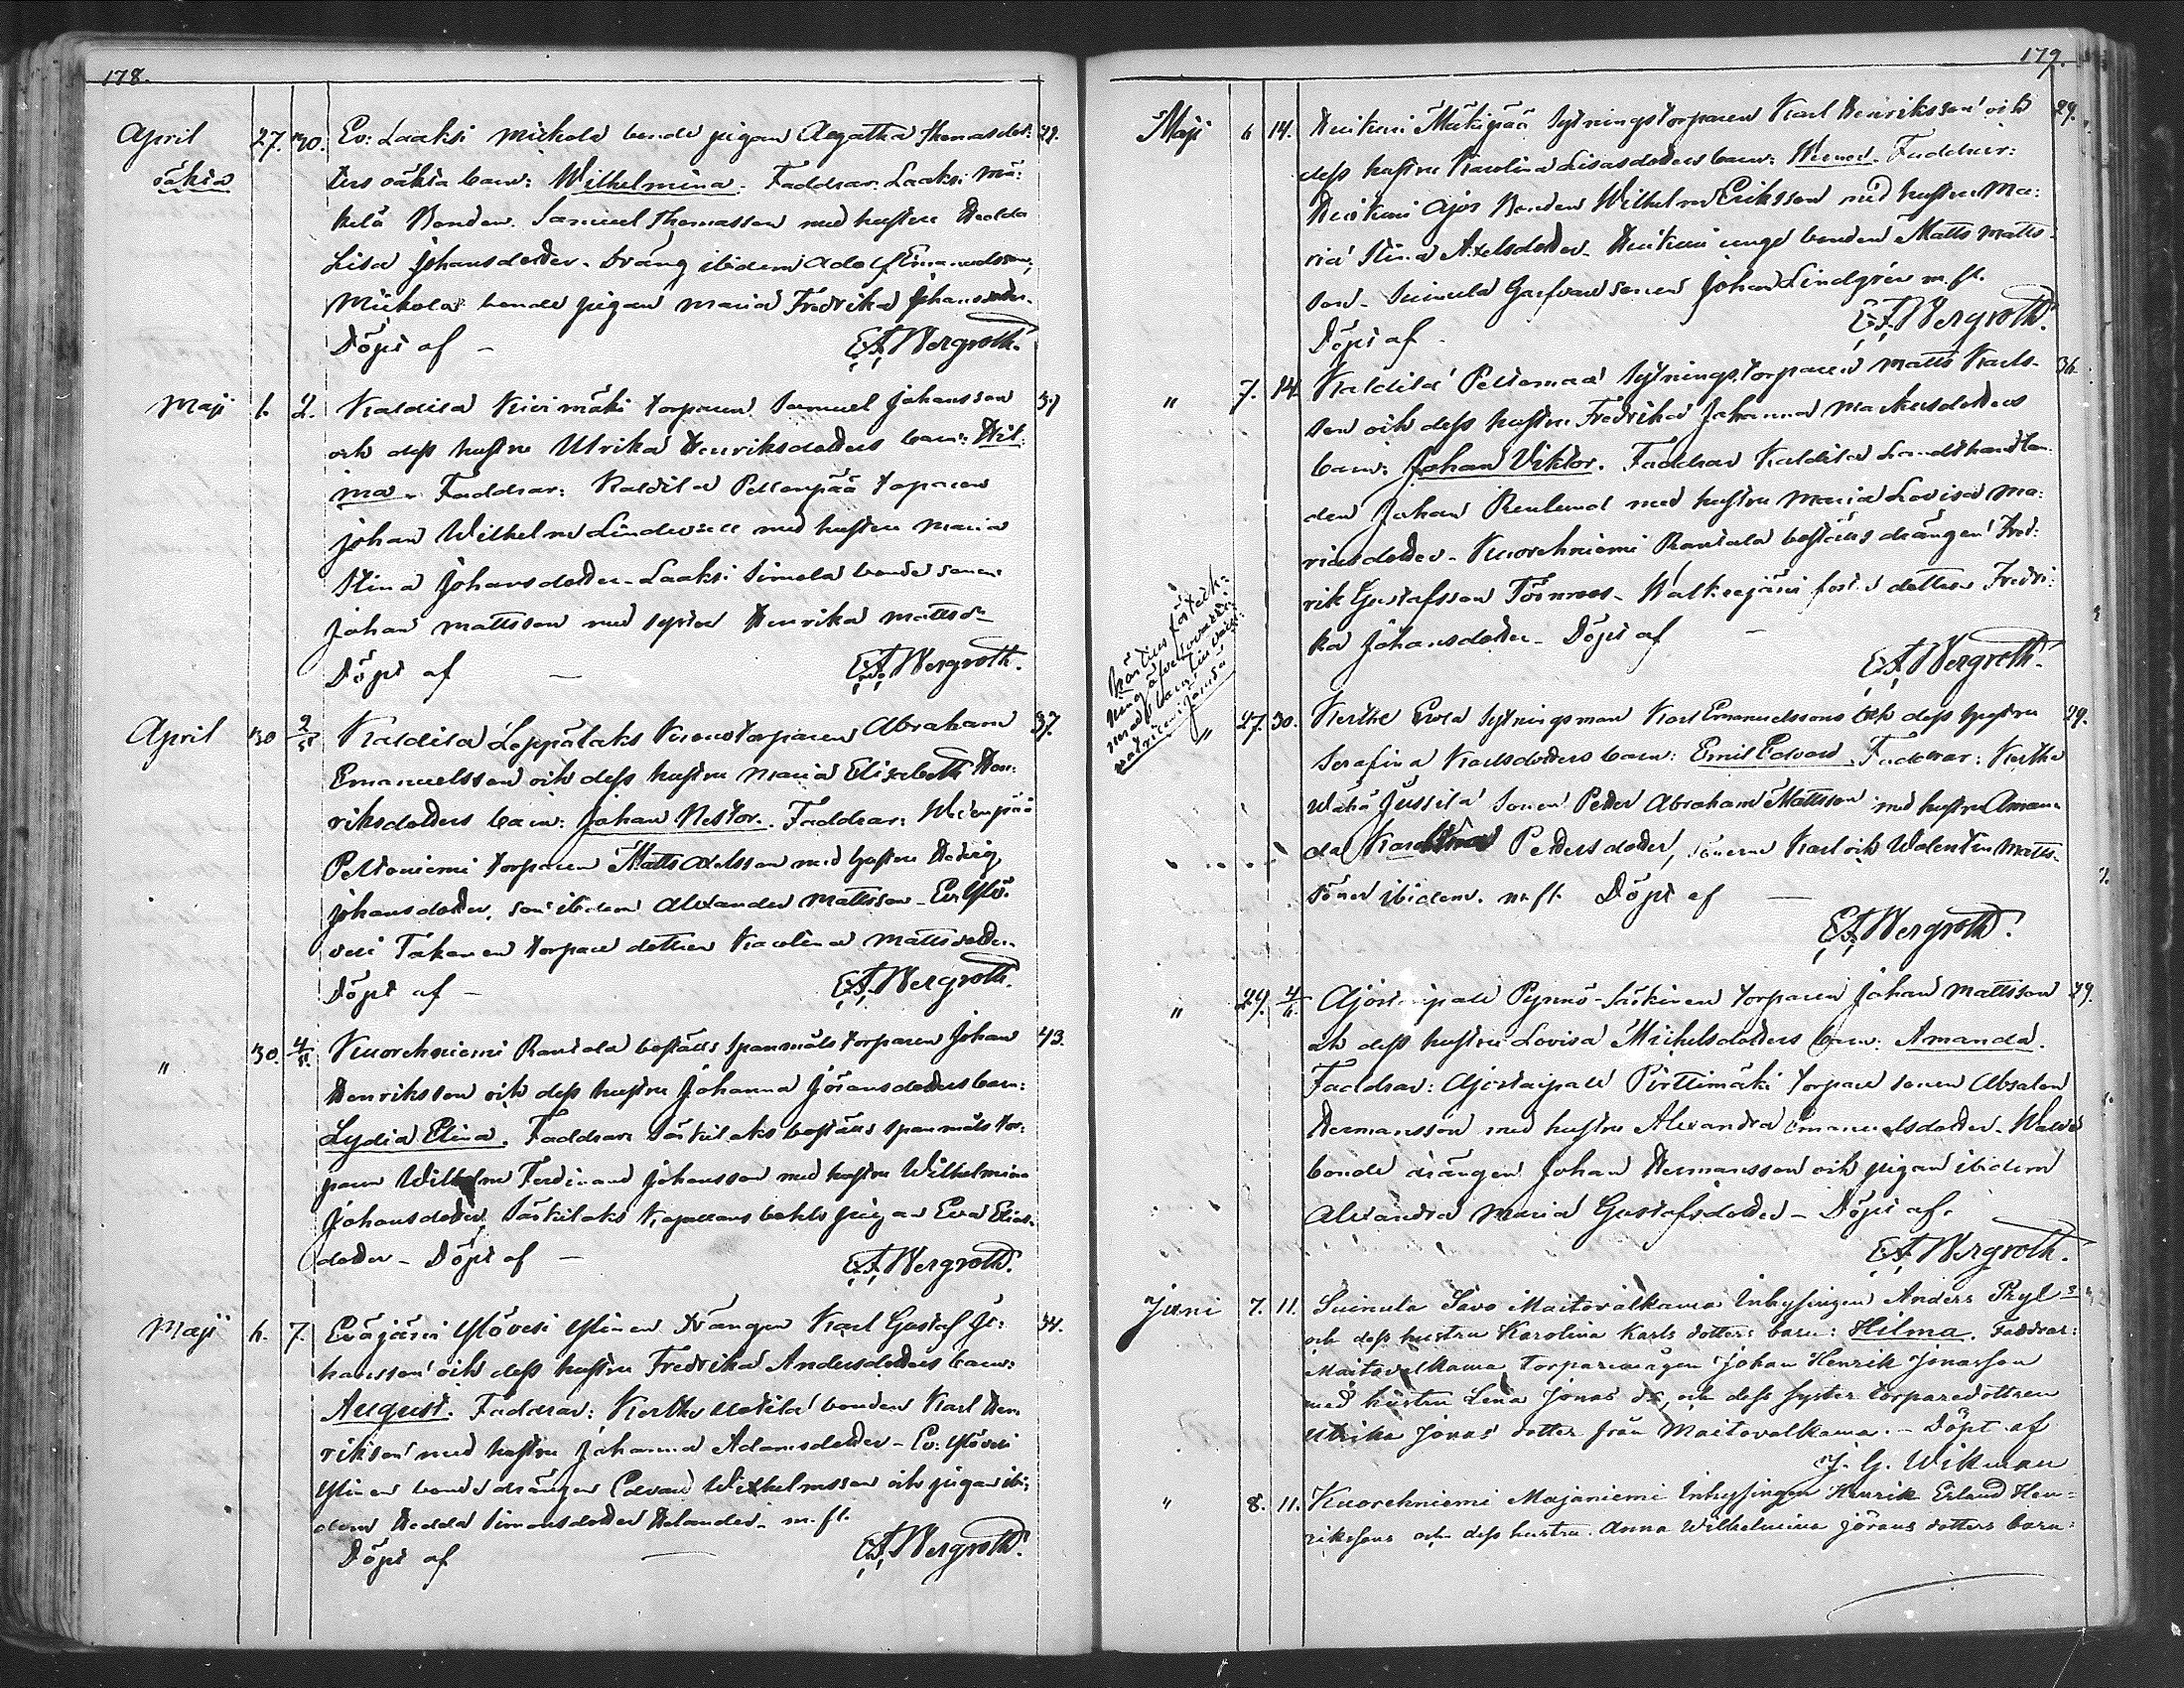 178.
April 27. 30. Ev: Laaksi Mickola bonde pigan Agatha Thomasdot: 22.
oäkta ters oäkta barn: Wilhelmina. Faddrar: Laaksi Mä:
kelä Bonden Samuel Thomasson med hustru Hedda
Lisa Johansdotter. Dräng ibidem Adolf Emanuelsson,
Mickola bonde pigan Maria Fredrika Johansdotter.
Döpt af – E.A. Bergroth.
Maji 1. 2. Kaldila Kivimäki torparen Samuel Johansson 37
och dess hustru Ulrika Henriksdotters barn: Hil:
ma. Faddrar: Kaldila Peltonpää torparen
Johan Wilhelm Lindevall med hustru Maria
Stina Johansdotter – Laaksi Simola bonde sonen
Johan Mattsson med syster Henrika Mattsdr
Döpt af – E.A. Bergroth.
April 30 2/5 Kaldila Leppälaks Kronotorparen Abraham 37.
Emanuelsson och dess hustru Maria Elisabeth Hen:
riksdotters barn: Johan Nestor. Faddrar:
Peltoniemi torparen Matts Adelsson med hustru Hedvig
Johansdotter, son ibidem Alexander Mattsson – Ev: Ylö:
vesi Takanen torpare dottren Karolina Mattsdotter.
Döpt af – E.A. Bergroth.
" 30. 4/5. Kuorehniemi Rantala boställs Spanmåls torparen Johan 43.
Henriksson och dess hustru Johanna Jöransdotters barn:
Lydia Elina. Faddrar: Särkilaks boställs spanmåls tor:
paren Wilhelm Ferdinand Johansson med hustru Wilhelmina
Johansdotter Särkilaks Kapellans bohls pigan Eva Elias-
dotter – Döpt af – E.A. Bergroth.
Maji 6. 7. Eväjärvi Ylövesi Ylinen Drängen Karl Gustaf Jo: 34.
hansson och dess hustru Fredrika Andersdotters barn:
August. Faddrar: Kerthe Uotila bonden Karl Hen
riksson med hustru Johanna Adamsdotter – Ev: Ylövesi
Ylinen bonde drängen Edvard Wilhelmsson och pigan ibi:
dem Hedda Simonsdotter Helander. m.fl.
Döpt af – E.A. Bergroth.
179.
Maji 6 14. Huikuri Mäkipää Sytningstorparen Karl Henriksson och 29.
dess hustru Karolina Lisasdotters barn: Werner. Faddrar:
Huikuri Ajos Bonden Wilhelm Eriksson med hustru Ma:
ria Stina Axelsdotter. Huikuri unge bonden Matts Matts-
son. Suinula Garfvare sonen Johan Lindgrén m.fl.
Döpt af. E.A. Bergroth.
" 7. 14 Kaldila Peltomaa Sytningstorparen Matts Karls- 36.
son och dess hustru Fredrika Johanna Markusdotters
barn: Johan Viktor. Faddrar Kaldila Landthandlan-
den Johan Renlund med hustru Maria Lovisa Ma:
riasdotter – Kuorehniemi Rantala boställs drängen Fred:
rik Gustafsson Törnroos – Walkeejärvi dottren Fredri:
ka Johansdotter – Döpt af –
E.A. Bergroth.
" 27. 30. Kerthe Erola Sytningsman Karl Emanuelssons och dess hustru 29.
Serafina Karlsdotters barn: Emil Edvard. Faddrar: Kerthe
Wähä Jussila Sonen Peder Abraham Mattsson med hustru Aman
da Karolina Pettersdotter, sönerne Karl och Walentin Matts-
söner ibidem. m.fl. Döpt af –
E.A. Bergroth.
" 29. 4/6. Ajostaipale Pyrnö-Särkinen torparen Johan Mattsson 29.
och dess hustru Lovisa Mickelsdotters barn: Amanda.
Faddrar: Ajostaipale Pirttimäki torpare sonen Absalon
Hermansson med hustru Alexandra Emanuelsdotter.
bonde drängen Johan Hermansson och pigan ibidem
Alexandra Maria Gustafsdotter – Döpt af.
E.A. Bergroth.
Juni 7. 11. Suinula Savo Maitovalkama Inhysingen Anders
och dess hustru Karolina Karls dotters barn: Hilma. Faddrar:
Maitovalkama torparemågen Johan Henrik Jonasson
med hustru Lena Jonas dr, och dess syster torparedottren
Ulrika Jonas dotter från Maitovalkama. – Döpt af
J. G. Wikman
" 8. 11. Kuorehniemi Majaniemi Inhysingen Henrik Erland Hen-
rikssons och dess hustru Anna Wilhelmina Jörans dotters barn: